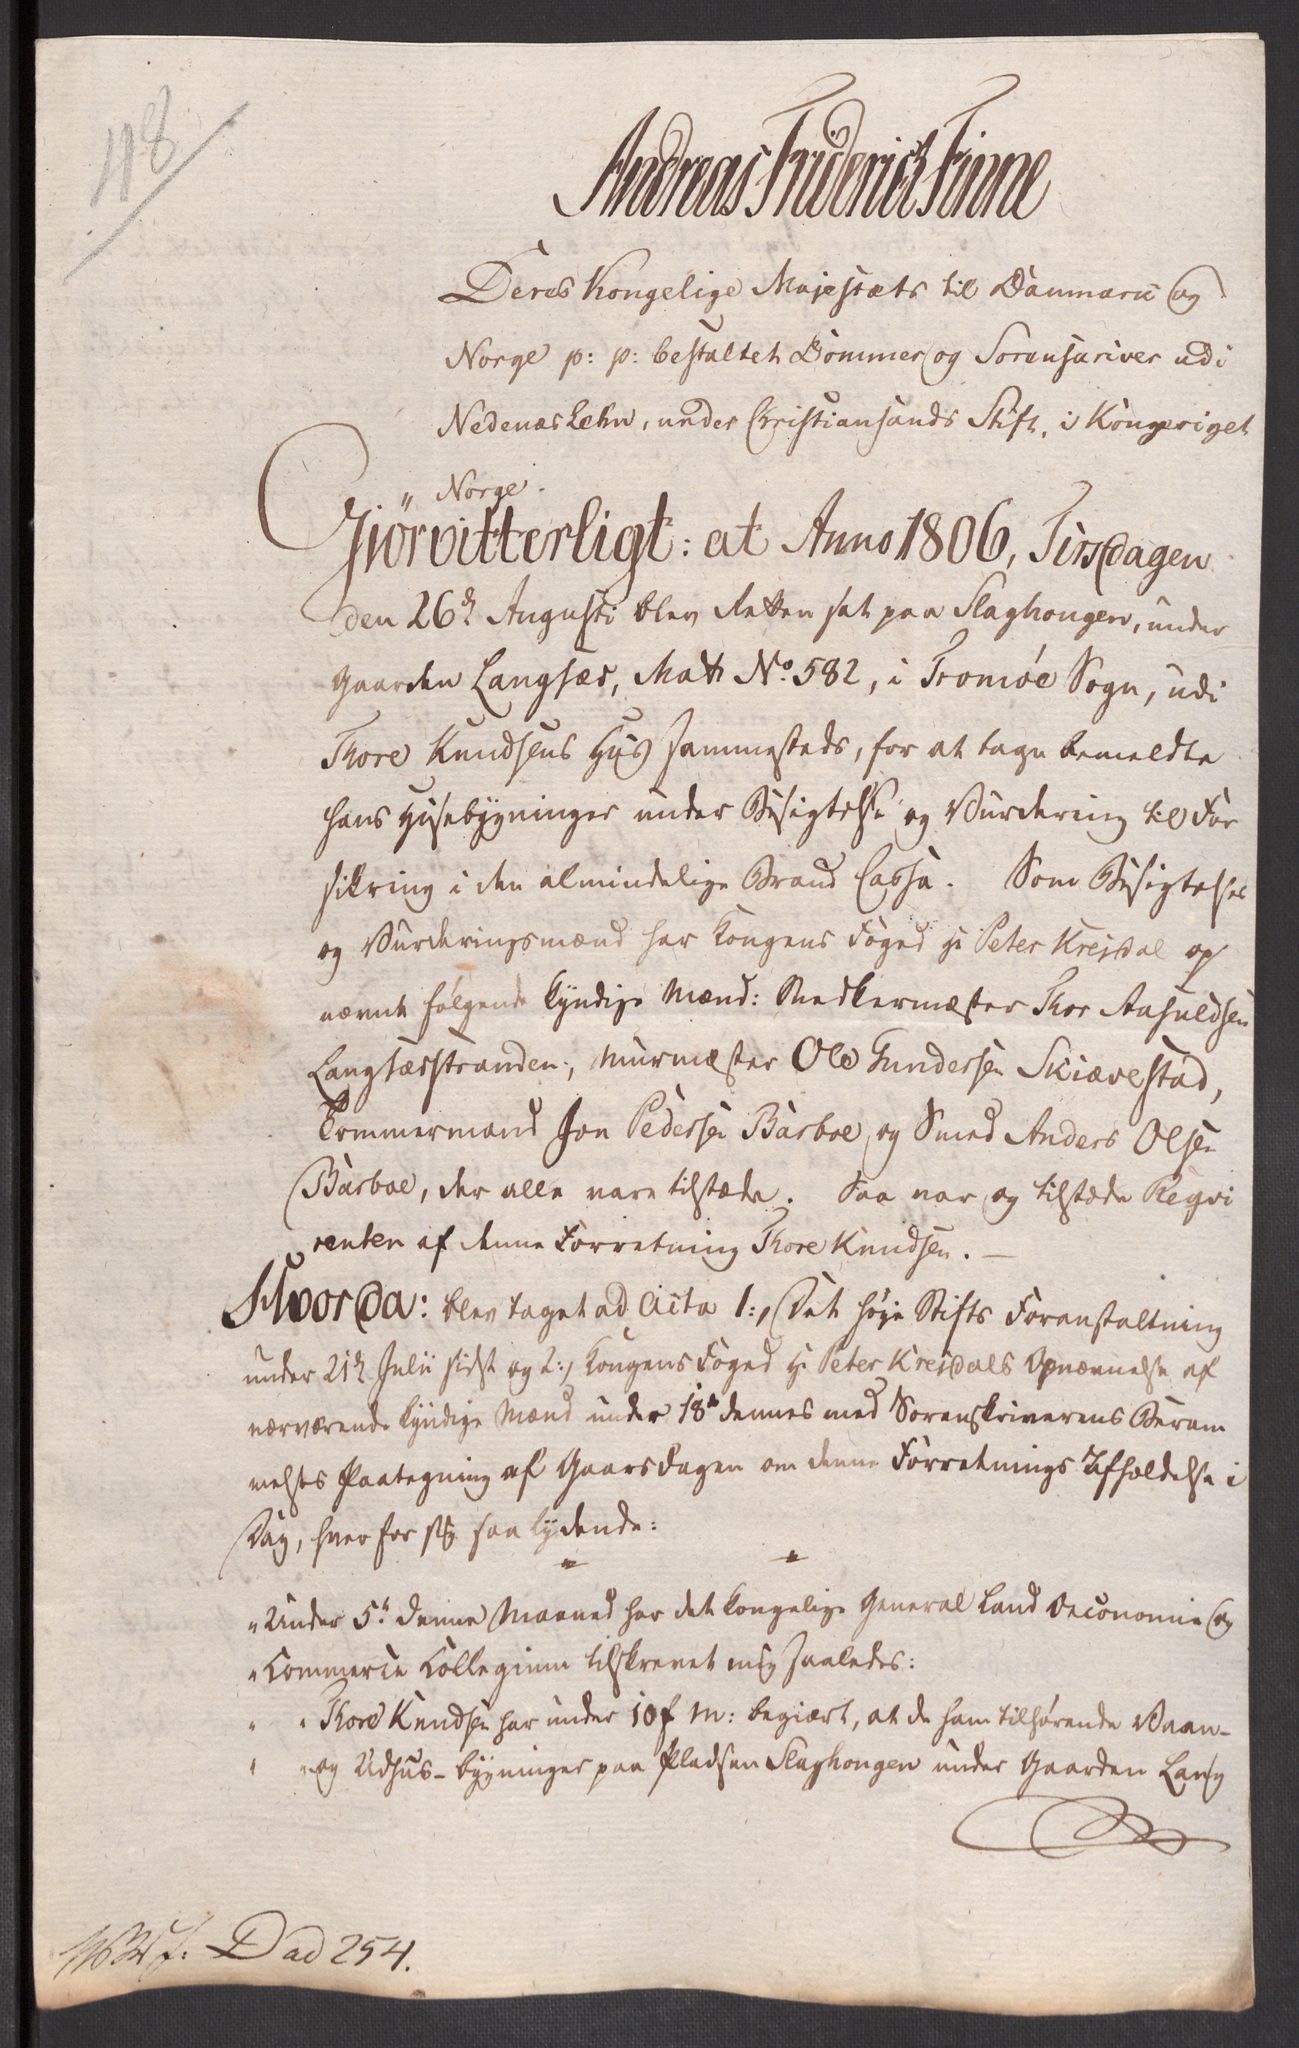 118
Andreas Friderich Finne
Deres Kongelige Majestæts til Danmark og
Norge p: p: bestaltet Dommer og Sorenskriver udi
Nedenæs Lehn, under Christiansands Stift, i Kongeriget
Norge.
Giörvitterligt: at Anno 1806, Tirsdagen
den 26de Augusti blev Retten sat paa Slaghougen, under
Gaarden Langsær, Matr No. 582, i Tromöe Sogn, udi
Thore Knudsens Huus sammesteds, for at tage bemeldte
hans Huusebygninger under Besigtelse og Vurdering til For
sikring i den almindelige Brand Cassa. Som Besigtelses
og Vurderingsmænd har Kongens Foged Hr Peter Kreidal op
nævnt følgende kyndige Mænd: Snedkermæster Thor Aasuldsen
Langsærstranden, Murmæster Ole Gundersen Skiævestad,
Tømmermand Jon Pedersen Barboe og Smed Anders Olsen
Barboe, der alle vare tilstæde. Saa var og tilstæde Reqvi
renten af denne Forretning Thore Knudsen. —
Hvorda: blev taget ad Acta 1:, Det høje Stifts Foranstaltning
under 21de Julii sidst og 2:, Kongens Foged Hr Peter Kreidals Opnævnelse af
nærværende kyndige Mænd under 18de dennes med Sorenskriverens Beram
melses Paategning af Gaarsdagen om denne Forretnings Afholdelse i
Dag, hver for sig saa lydende:
" "
" Under 5te denne Maaned har det kongelige General Land Oeconomie og
" Commerce Collegium tilskrevet mig saaledes:
" " Thore Knudsen har under 10 f. M: begiært, at de ham tilhørende Vaan-
" " og Udhus-bygninger paa Pladsen Slaghougen under Gaarden Lang
D ad 254.